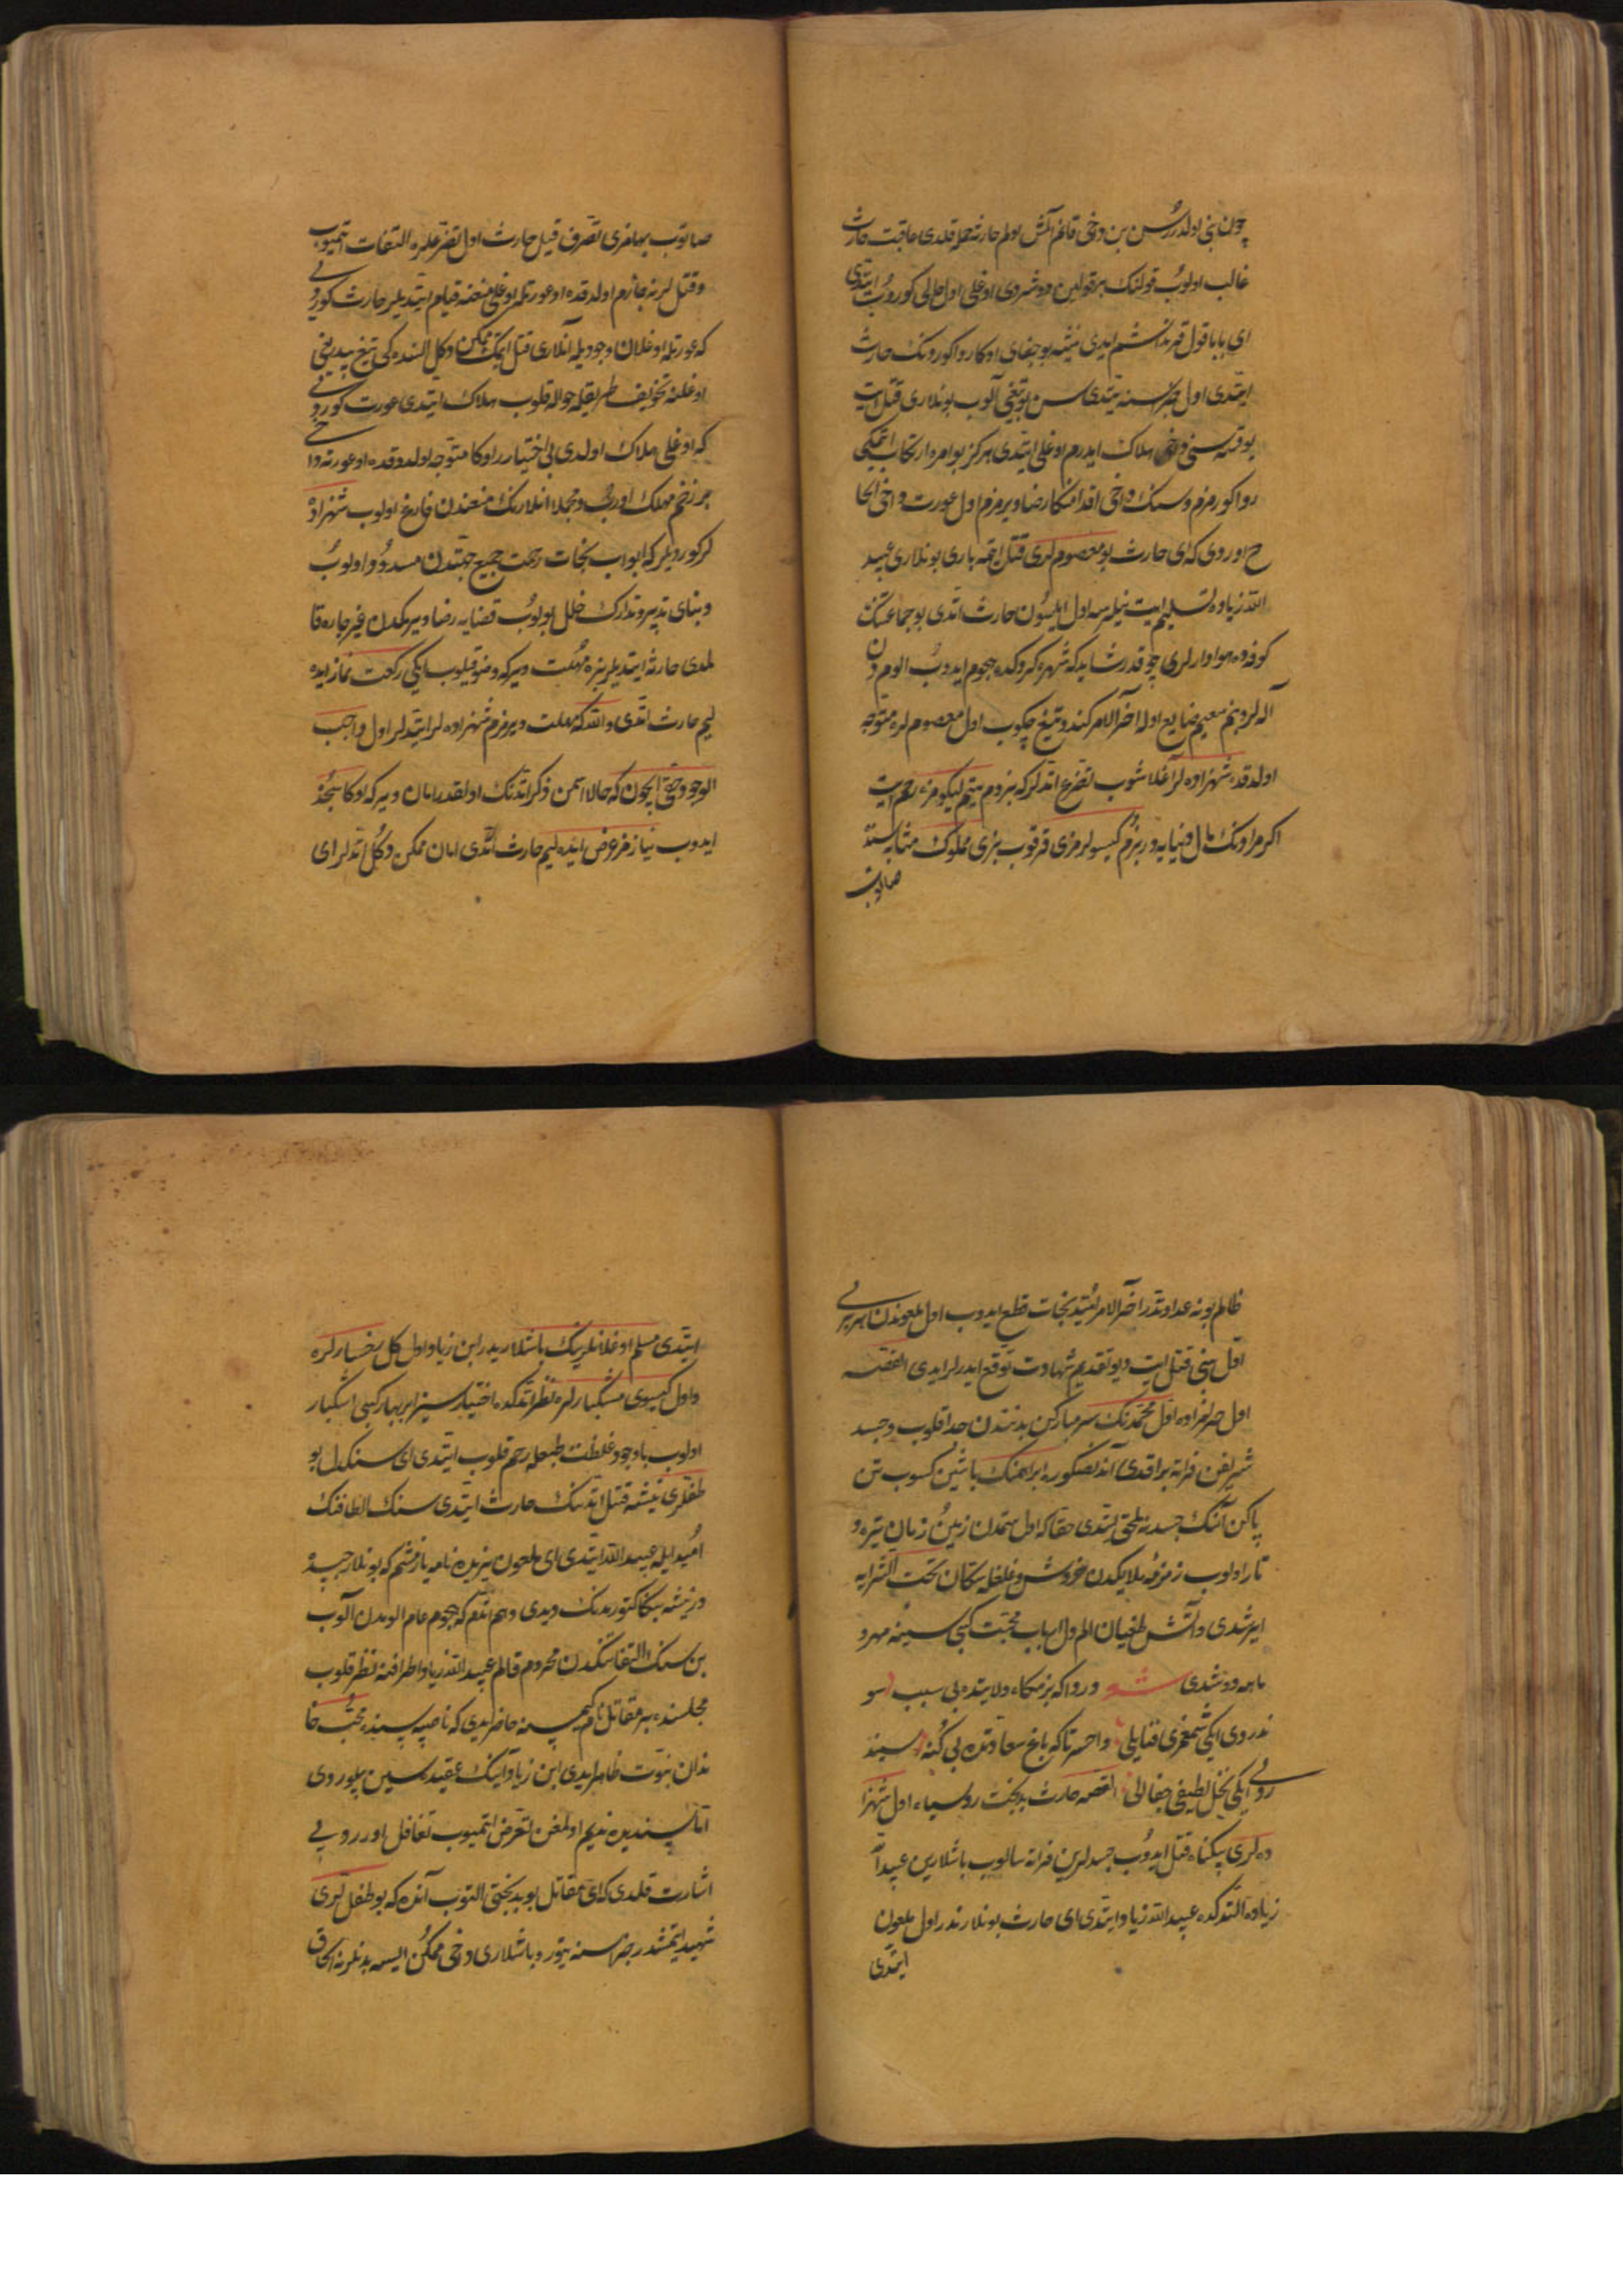 چون بنی اولدررسن بن دخی قانم آلمش بولم حارثه حمله قلدی عاقبت حارث
غالب اولوب قولنک بر قولین دوشردی اوغلی اول حالی کوروب ایتدی
ای بابا قول قرنداشم ایدی نیشه بو جفای اوکا روا کوردنک حارث
ایتدی اول جزاسنه یتدی سن بو تیغی آلوب بونلاری قتل ایت
یوقسه سنی دخی هلاک ایدرم اوغلی ایتدی هرکز بو امره ارتکاب ایتمکی
روا کورمزم وسنک داخی اقدامنکا رضا ویرمزم اول عورت داخی الحا
ح اوردی که ای حارث بو معصوملری قتل ایتمه باری بونلاری عبید
الله زیاده تسلیم ایت نیلرسه اول ایلسون حارث اتدی بو جماعتنک
کوفه ده هوادارلری چوقدر شاید که شهره کردکده هجوم ایدوب الومدن
آله لر وبنم سعیم ضایع اوله آخر الامر کندو تیغ چکوب اول معصوملره متوجه
اولدقده شهزاده لر آغلاشوب تضرع اتدلر که بزدم یتیم لیکومزه رحم ایت
اکر مرادنک مال دنیایه در بزم کیسولرمزی قرقوب بزی مملوک مثابه سنده
صاتوب
صاتوب بهامزی تصرف قیل حارث اول تضرعلره التفات ایتمیوب
وقتللرینه جازم اولدقده او عورتله اوغلی منعنه قیام ایتدیلر حارث کوردی
که عورتله اوغلان وجودیله آنلاری قتل ایتمک ممکن دکل النده کی تیغ بیدریغی
اوغلنه تخویف طریقیله حواله قلوب هلاک ایتدی عورت کوردی
که اوغلی هلاک اولدی بی اختیار اوکا متوجه اولدوقده او عورته داخی
بر زخم مهلک اوردی ومجملا انلارنک منعندن فارغ اولوب شهزاده
لر کوردیلر که ابواب نجات رحمت جمیع جهتدن مسدود اولوب
وبنای تدبیر وتدارک خلل بولوب قضایه رضا ویرمکدن غیر چاره قا
لمدی حارثه ایتدیلر بزه مهلت ویر که وضو قیلوب ایکی رکعت نماز ایده
لیم حارث اتدی والله که مهلت ویرمزم شهزاده لر ایتدلر اول واجب
الوجود حقی ایچون که حالا آتمن ذکر اتدنک اولقدر امان ویر که اوکا سجده
ایدوب نیاز مفروض ایده لیم حارث اتدی امان ممکن دکل اتدلر ای
ظالم بو نه عداوتدر آخر الامر امید نجات قطع ایدوب اول ملعوندن هر بری
اول بنی قتل ایت دیو تقدیم شهادت توقع ایدرلر ایدی القصه
اول حرامزاده اول محمدنک سر مبارکن بدنندن جدا قلوب وجسد
شریفن فراته براقدی آندنصکره ابراهیمنک باشین کسوب تن
پاکن آنک جسدینه ملحق ایتدی حقا که اول ستمدن زمین زمان تیره و
تار اولوب زمزمه ملایکدن خروش وغلغله سکان تحت الثرایه
ایرشدی وآتش طغیان الم دل ارباب محبت کبی سینه مهر و
ماهه دوشدی شعر دردا که بزمکاه ولایتده بی سبب سو
ندردی ایکی شمعی قضا یلی واحسرتا که باغ سعادتده بی کنه سیند
ردی ایکی نخل لطیفی جفا الی القصه حارث بدبخت روسیاه اول شهزا
ده لری بیکناه قتل ایدوب جسدلرین فراته سالوب باشلارین عبید الله
زیاده التدکده عبید الله زیاد ایتدی ای حارث بونلار ندر اول ملعون
ایتدی
ایتدی مسلم اوغلانلرینک باشلاریدر ابن زیاد اول کل رخسارلره
واول کیسوی مشکبارلره نظر اتدکده اختیارسیز ابر بهار کبی اشکبار
اولوب باوجود غلظت طبعله رحم قلوب ایتدی ای سنکدل بو
طفللری نیشه قتل اتدنک حارث ایتدی سنک الطافنک
امیدیله عبید الله ایتدی ای ملعون یزیده نامه یازمشم که بونلار حبسده
در نیشه بنکا کتورمدنک دیدی وهم اتدم که هجوم عام الومدن آلوب
بن سنک التفاتنکدن محروم قالم عبید الله زیاد اطرافنه نظر قلوب
مجلسنده بر مقاتل نام کیمسنه حاضر ایدی که ناصیه سنده محبت خا
ندان نبوت ظاهر ایدی ابن زیاد آنک عقیده سین بیلوردی
اما پسندیده ندیم اولمغن تعرض ایتمیوب تغافل اورردی
اشارت قلدی که ای مقاتل بو بدبختی التوب آنده که بو طفللری
شهید ایتمشدر جزاسنه یتور و باشلاری دخی ممکن ایسه بدنلرنه الحاق